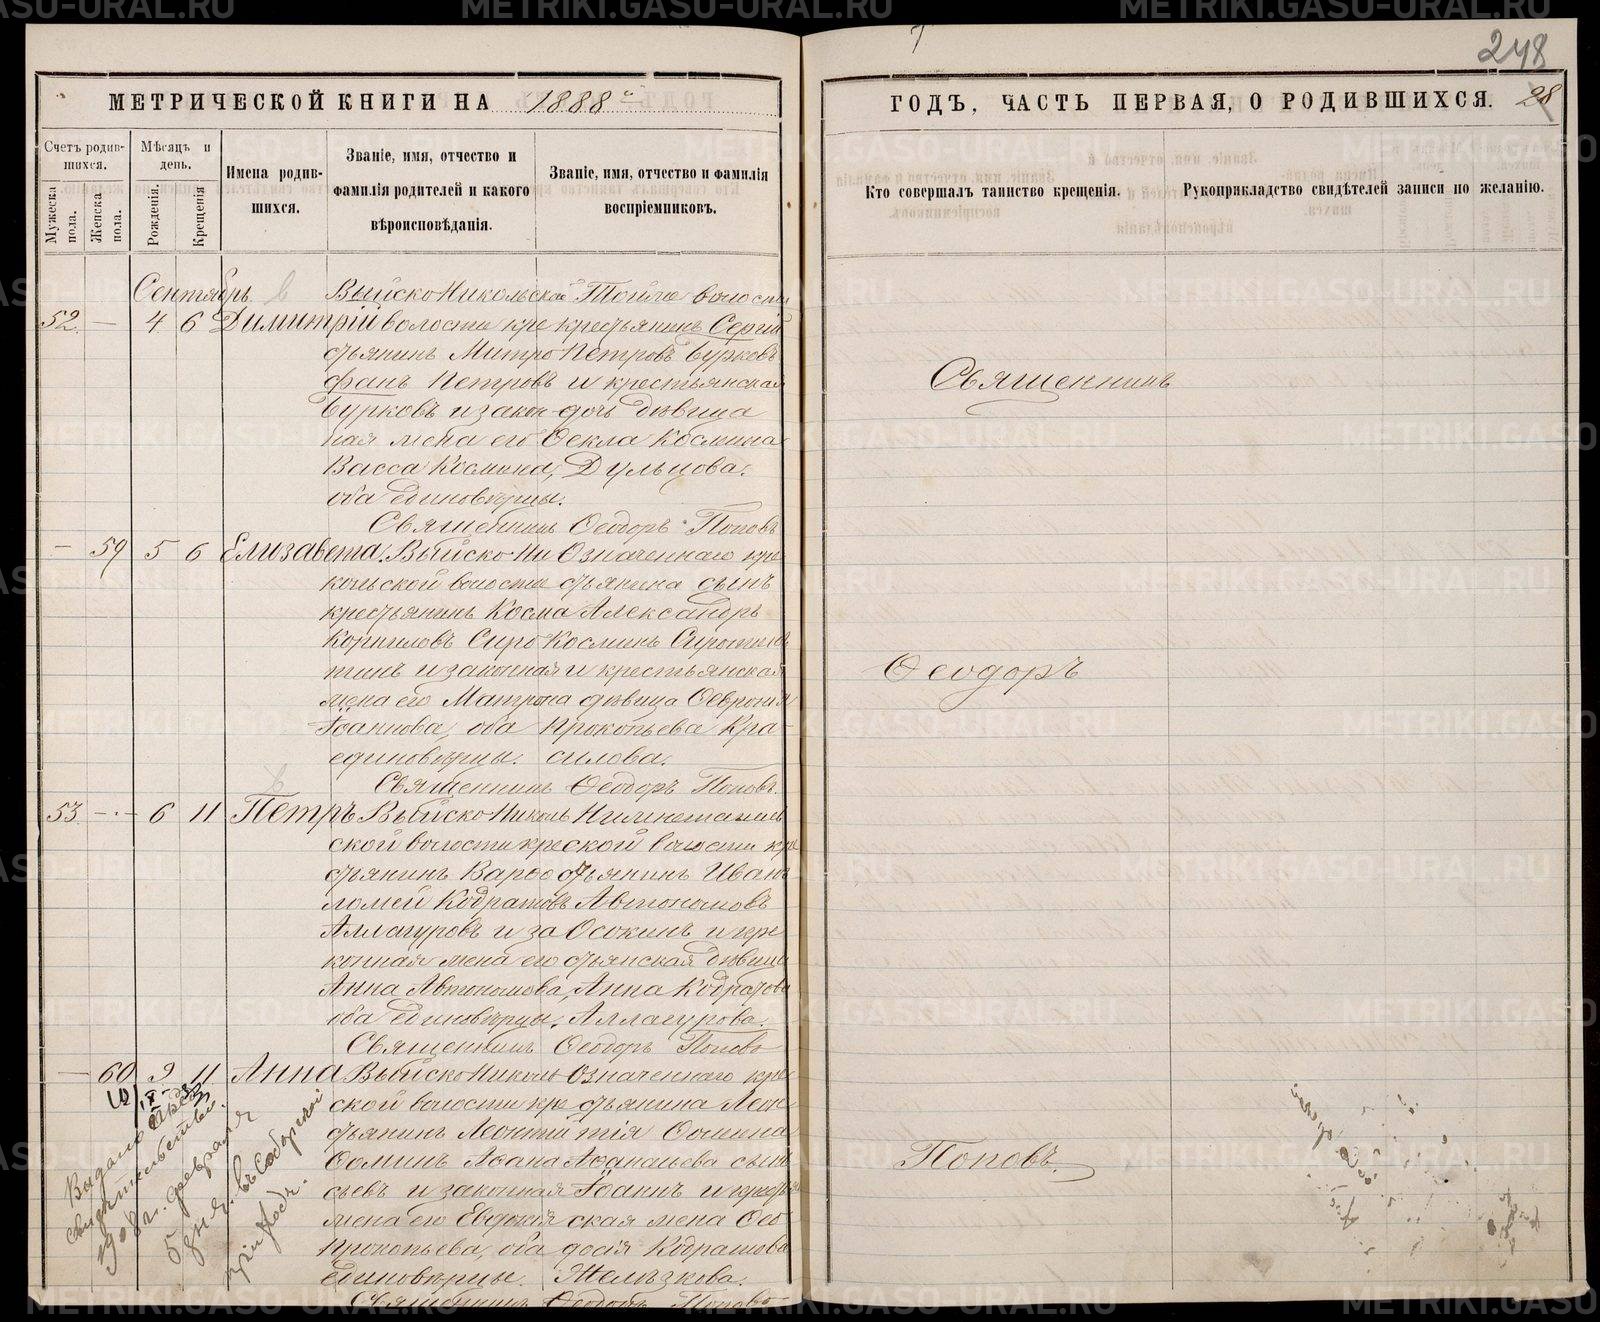 248
МЕТРИЧЕСКОЙ КНИГИ НА 1888
ГОДЪ, ЧАСТЬ ПЕРВАЯ, О РОДИВШИХСЯ. 28
Счетъ родив-
шихся.
Мужеска пола.
Женска пола.
Мѣсяцъ и
день.
Рожденія.
Крещенія
Имена родив-
шихся.
Званіе, имя, отчество и
фамилія родителей и какого
вѣроисповѣданія.
Званіе, имя, отчество и фамилія
воспріемниковъ.
Кто совершалъ таинство крещенія.
Рукоприкладство свидѣтелей записи по желанію.
Сентябрь
52 — 4 6 Димитрій
ВыйскоНикольской
волости кре
стьянинъ Митро
фанъ Петровъ
Бурковъ и закон
ная жена его
Васса Космина,
оба единовѣрцы.
Тойже волости
крестьянинъ Сергій
Петровъ Бурковъ
и крестьянская
дочь дѣвица
Ѳекла Космина
Дульцова.
Священникъ Ѳеодоръ Поповъ
— 59 5 6 Елизавета.
Выйско-Ни
кольской волости
крестьянинъ Косма
Корниловъ Сиро
тинъ и законная
жена его Матрона
Іоаннова, оба
единовѣрцы.
Означеннаго кре
стьянина сынъ
Александръ
Косминъ Сиротинъ
и крестьянская
дѣвица Ѳеврония
Прокопьева Кра-
силова.
Священникъ Ѳеодоръ Поповъ.
53 — 6 11 Петръ
ВыйскоНиколь
ской волости кре
стьянинъ Варѳо
ломей Кодратовъ
Аллагуровъ и за
конная жена его
Анна Автономова,
оба единовѣрцы.
Нижнетагиль
ской волости кре
стьянинъ Иванъ
Автономовъ
Осокинъ и кре
стьянская дѣвица
Анна Кодратова
Аллагурова.
Священникъ Ѳеодоръ Поповъ
— 60 9 11 Анна
ВыйскоНиколь
ской волости кре
стьянинъ Леонтій
Ѳоминъ Аѳана
сьевъ и законная
жена его Евдокія
Прокопьева, оба
единовѣрцы.
Означеннаго кре
стьянина Леон
тія Ѳомина
Аѳанасьева сынъ
Іоаннъ и кресть
ская жена Ѳео
досія Кодратова
Желѣзкова.
Священникъ Ѳеодоръ Поповъ
Выдано
свидѣтельство
1908 г. февраля
5 дня. въ Соборной
приходъ.
Священникъ
Ѳеодоръ
Поповъ.
METRIKI.GASO-URAL.RU